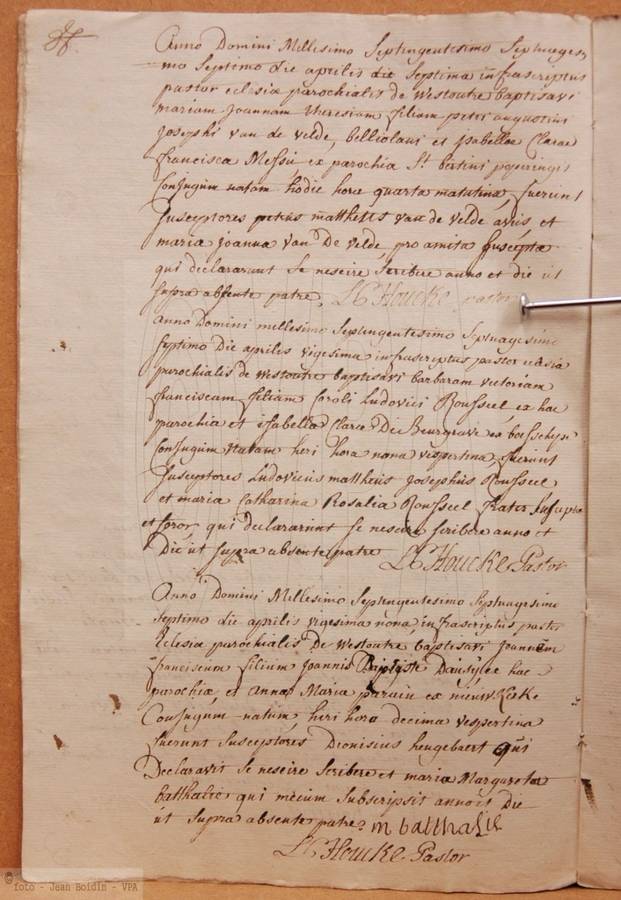 Anno Domini Millesimo Septingentesimo Septuagesi
mo Septimo die aprilis die Septima infrascriptus
pastor eclesiæ parochialis de Westoutre baptisavi
mariam Joannam theresiam filiam petri augustini
Josephi van de velde, belliolani et isabellæ Claræ
francisca Messü ex parochia St bertini poperingis
Conjugum natam hodie hora quarta matutina fuerunt
Susceptores petrus mattheus van de velde avus et
maria joanna van De velde, pro amita suscepta
qui declararunt se nescire scribere anno et die ut
supra absente patre, Houcke pastor
anno Domini millesimo Septingentesimo Septuagesimo
septimo Die aprilis vigesima infrascriptus pastor eclesiæ
parochialis de Westoutre baptisavi barbaram victoriam
franciscam filiam Caroli Ludovici Rousseel ex hac
parochia et isabella Claræ De Beurgrave ex boesschepe
Conjugum Natam heri hora nona vespertina, fuerunt
Susceptores Ludovicus mattheus josephus Rousseel
et maria Catharina Rosalia Rousseel frater Suscepta
et soror qui declararunt se nescire scribere anno et
Die ut supra absente patre Houcke Pastor
Anno Domini Millesimo Septingentesimo Septuagesimo
septimo die aprilis vigesima nona infrascriptus pastor
Eclesiæ parochialis De Westoutre baptisavi Joannem
franciscum filium Joannis Baptiste hac
parochiæ, et annæ Maria parain ex nieuw Kerke
Conjugum natum, heri hora decima vespertina
fuerunt susceptores Dionisius heugebaert qui
Declaravit se nescire scribere et maria Margareta
batthalie qui mecum subscripsit anno et Die
ut supra absente patre m batthalie
Houcke Pastor
© foto - Jean Boidin - VPA